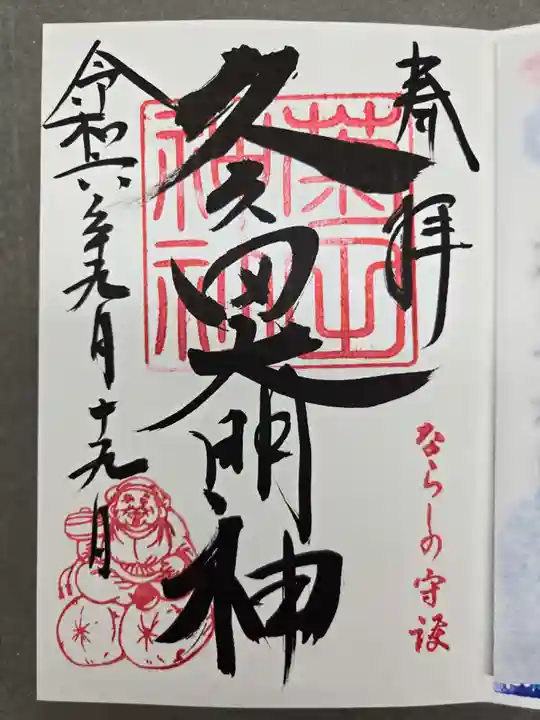 奉拝
ならしの守護
久々田大明神
令和六年九月十九日